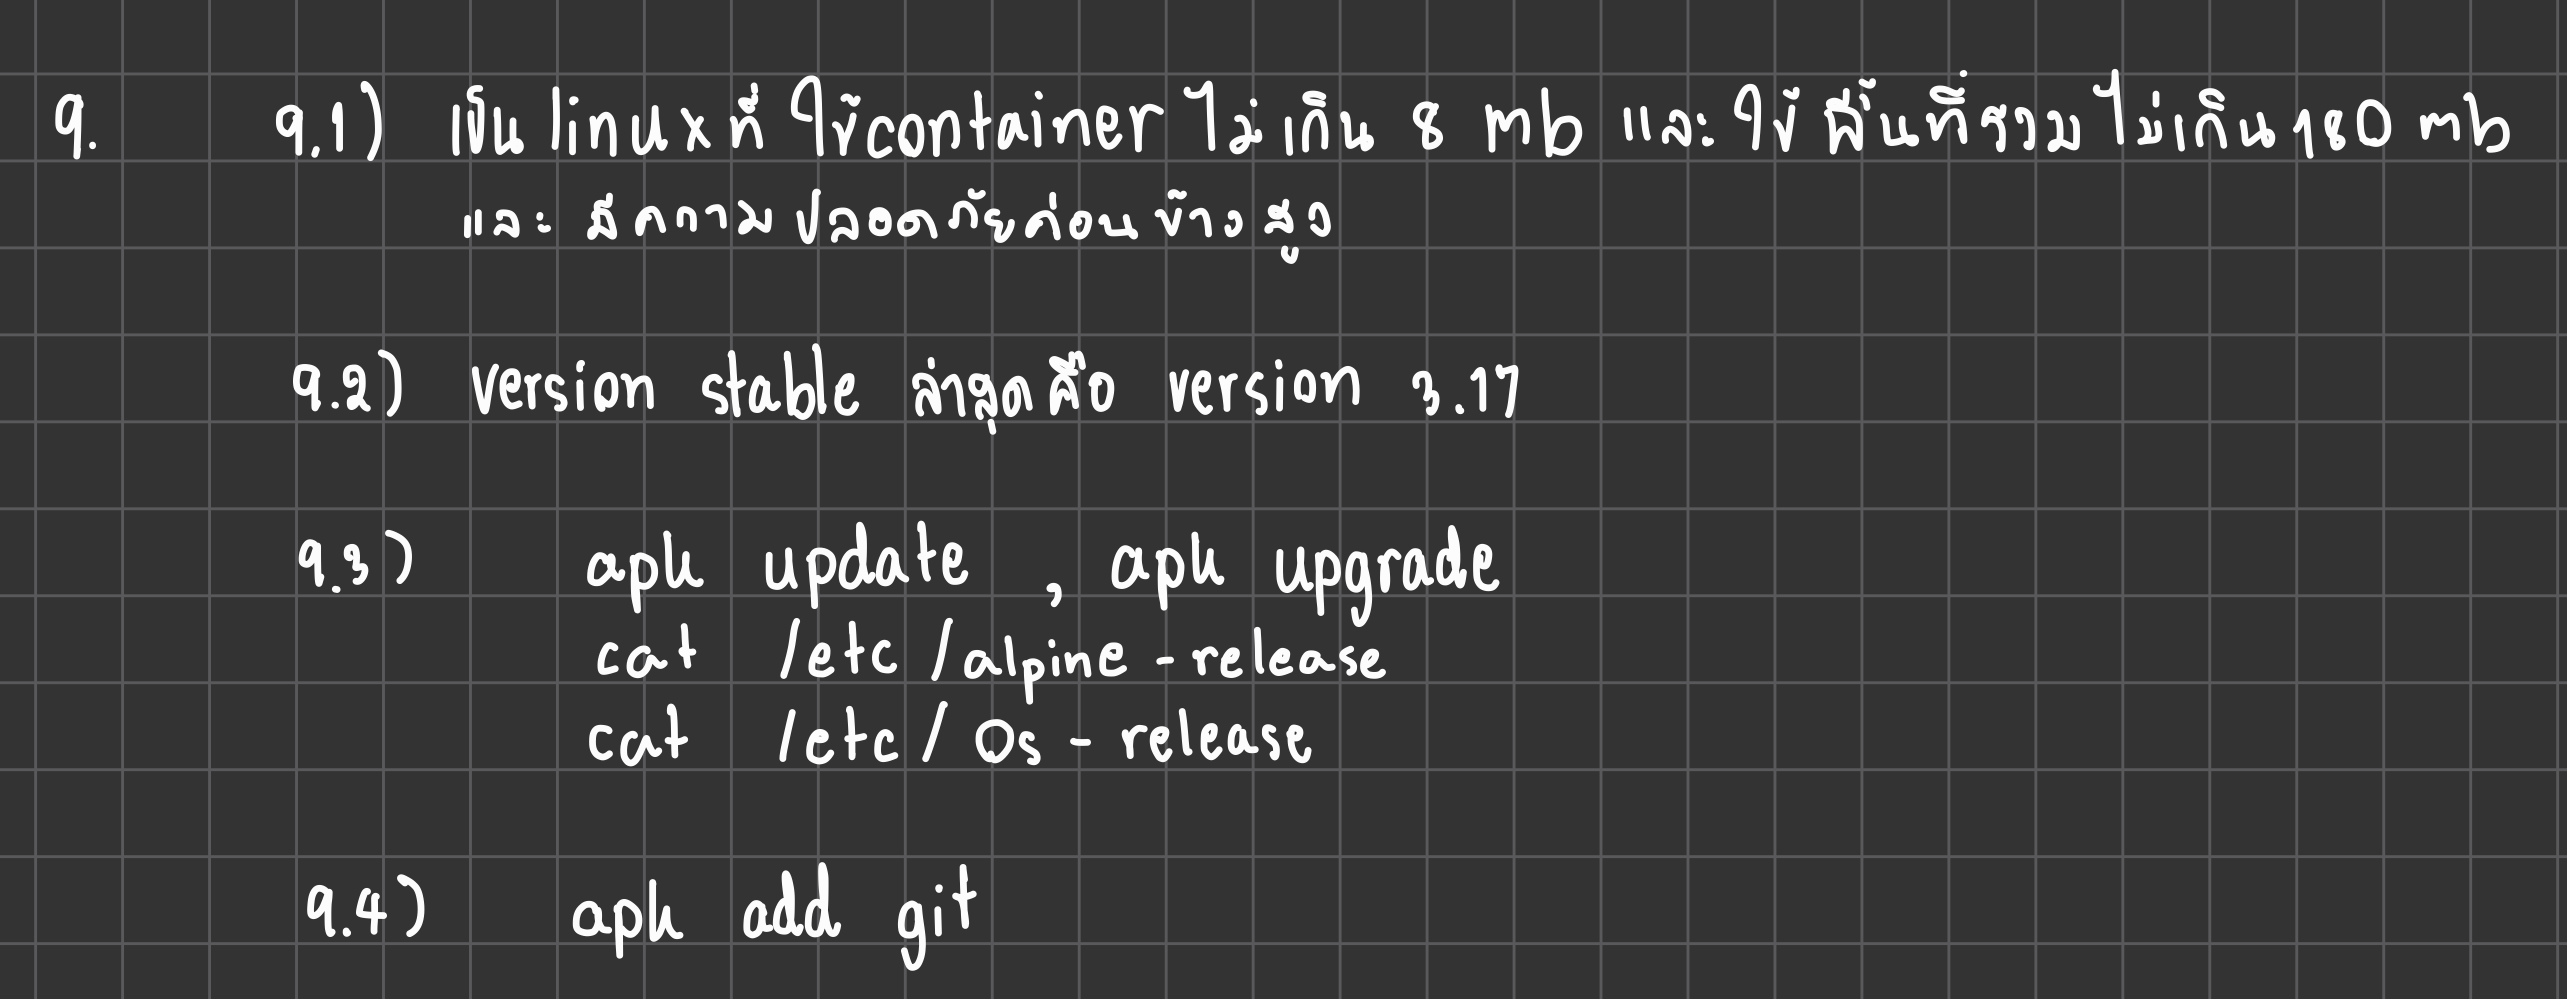 9. 9.1) เป็น linux ที่ ใช้ container ไม่เกิน 8 mb และ ใช้ พื้นที่รวม ไม่เกิน 180 mb
และ มีความ ปลอดภัยค่อนข้างสูง
9.2) version stable ล่าสุดคือ version 3.17
9.3) apk update , apk upgrade
cat /etc/alpine-release
cat /etc/Os-release
9.4) apk add git